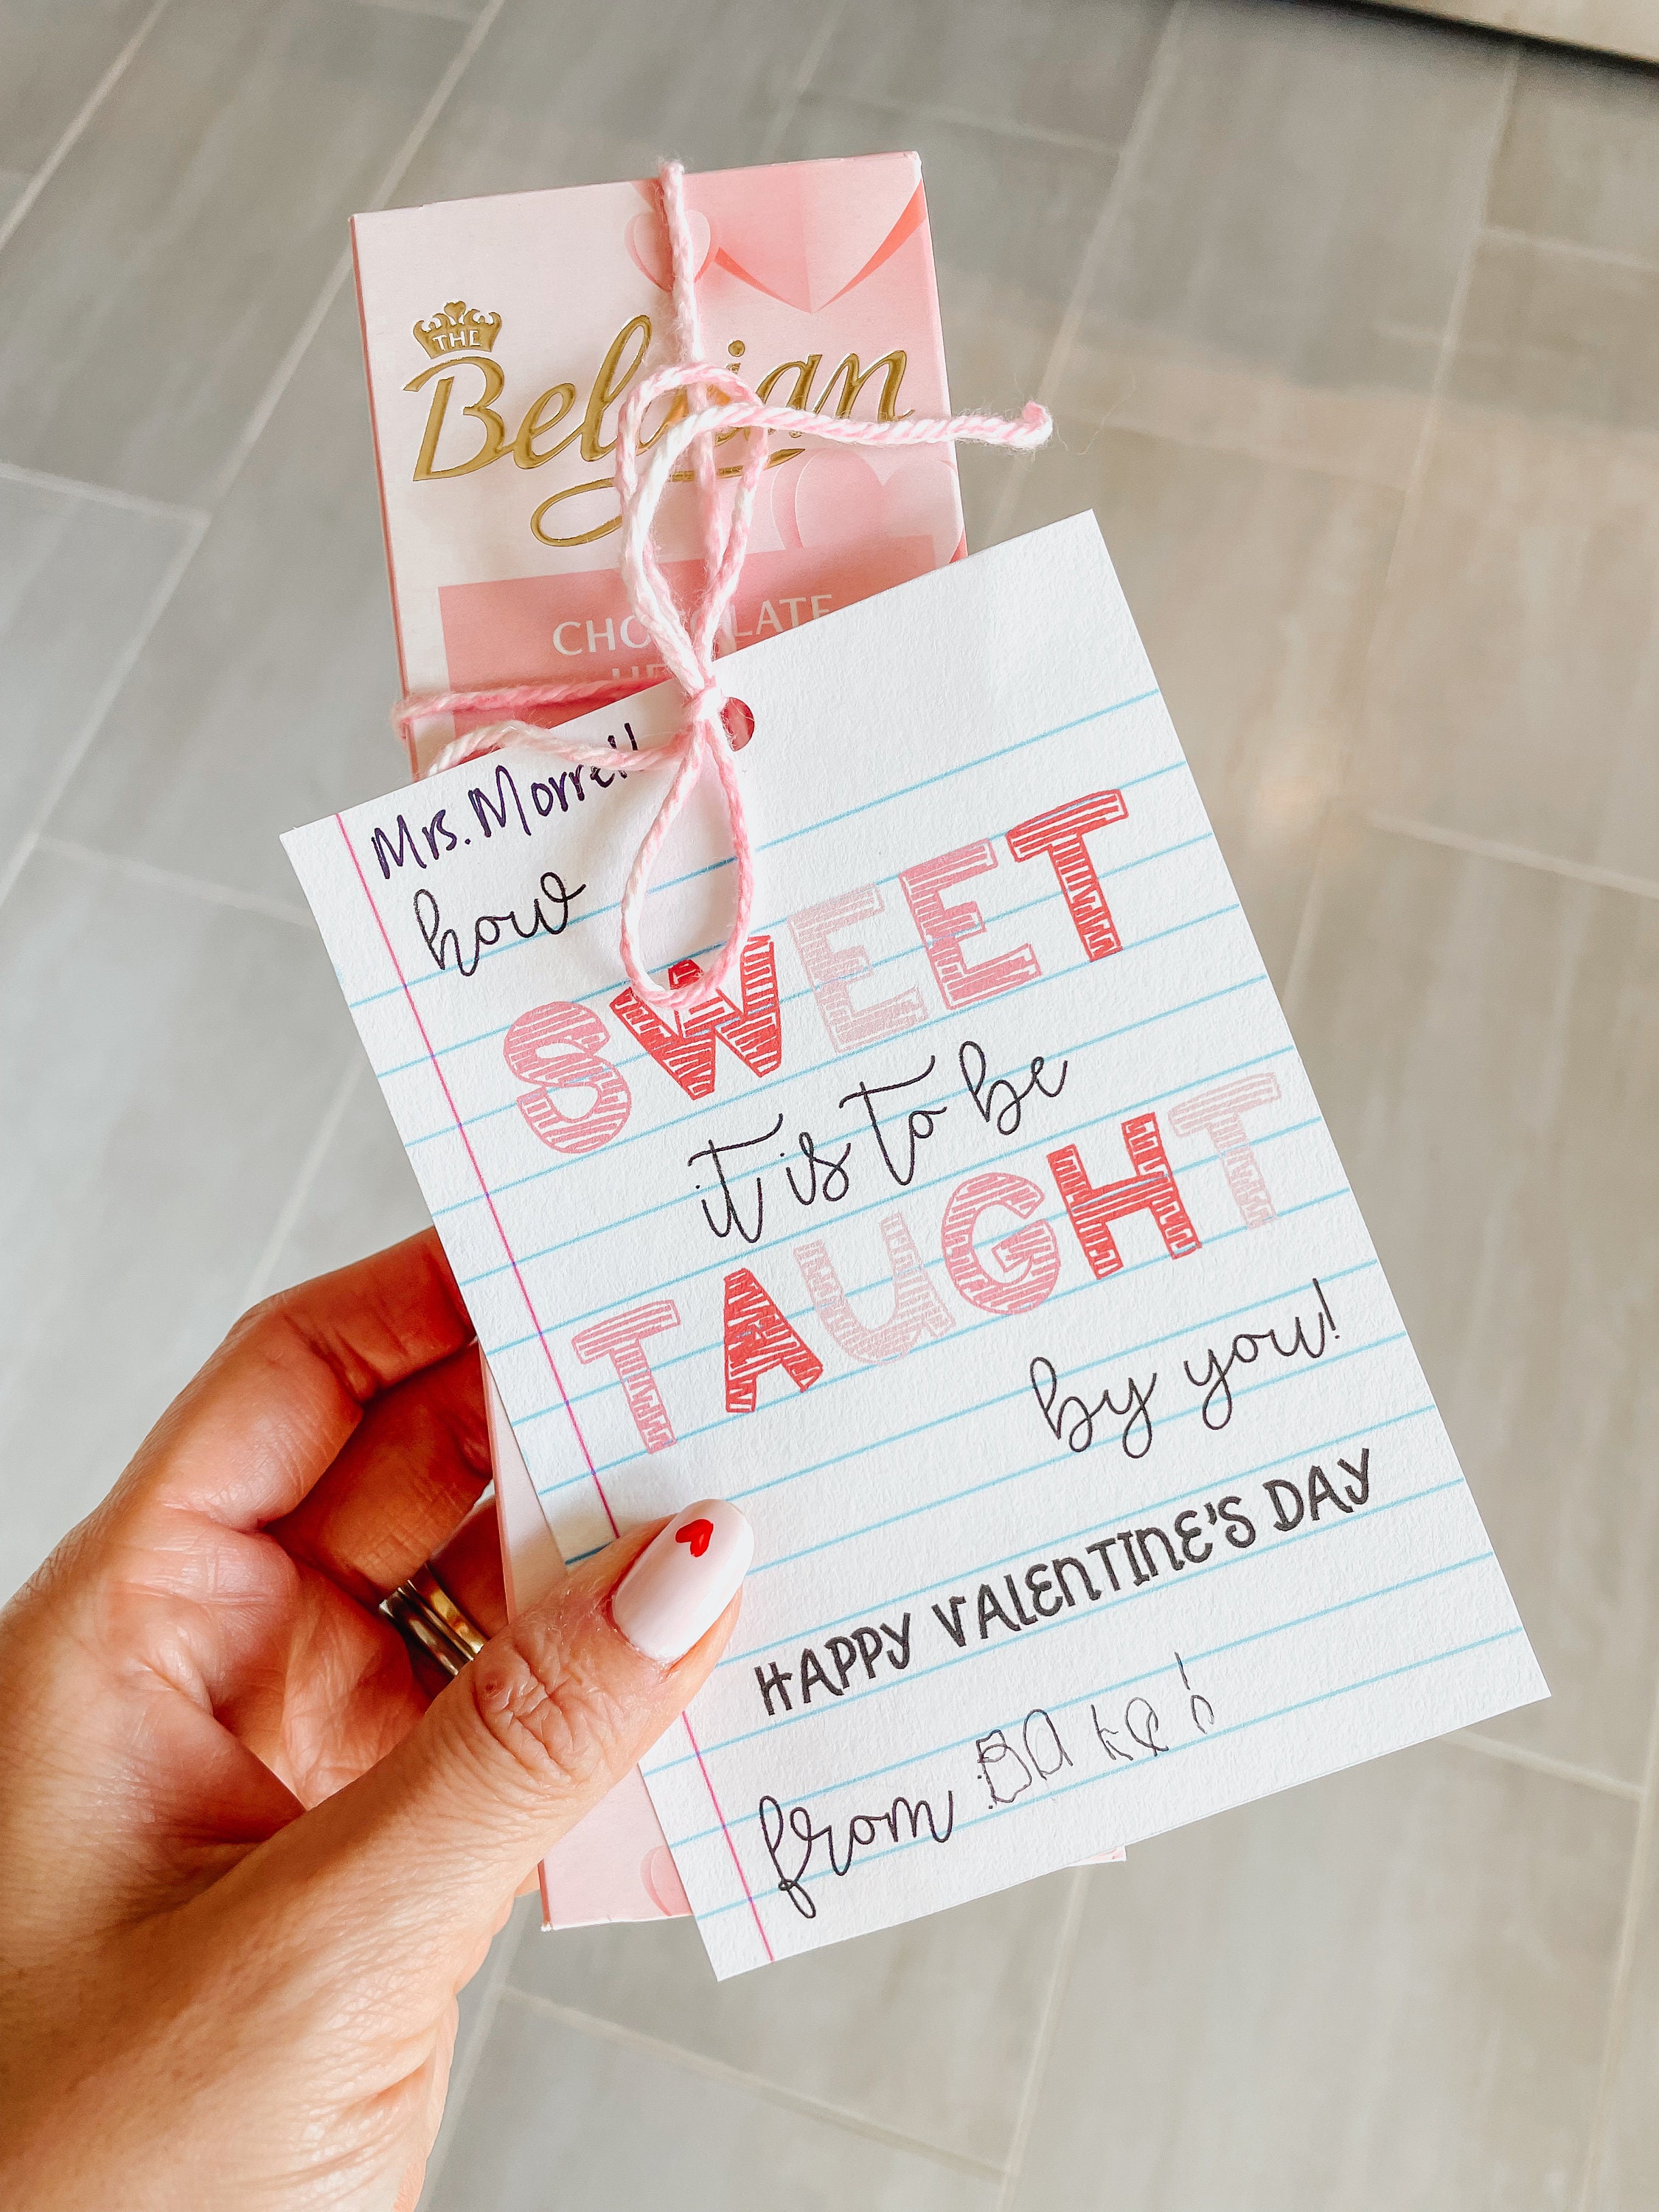 THE
Belgian
CHOCOLATE
Mrs. Morrell
how
SWEET
it is to be
TAUGHT
by you!
HAPPY VALENTINE'S DAY
from